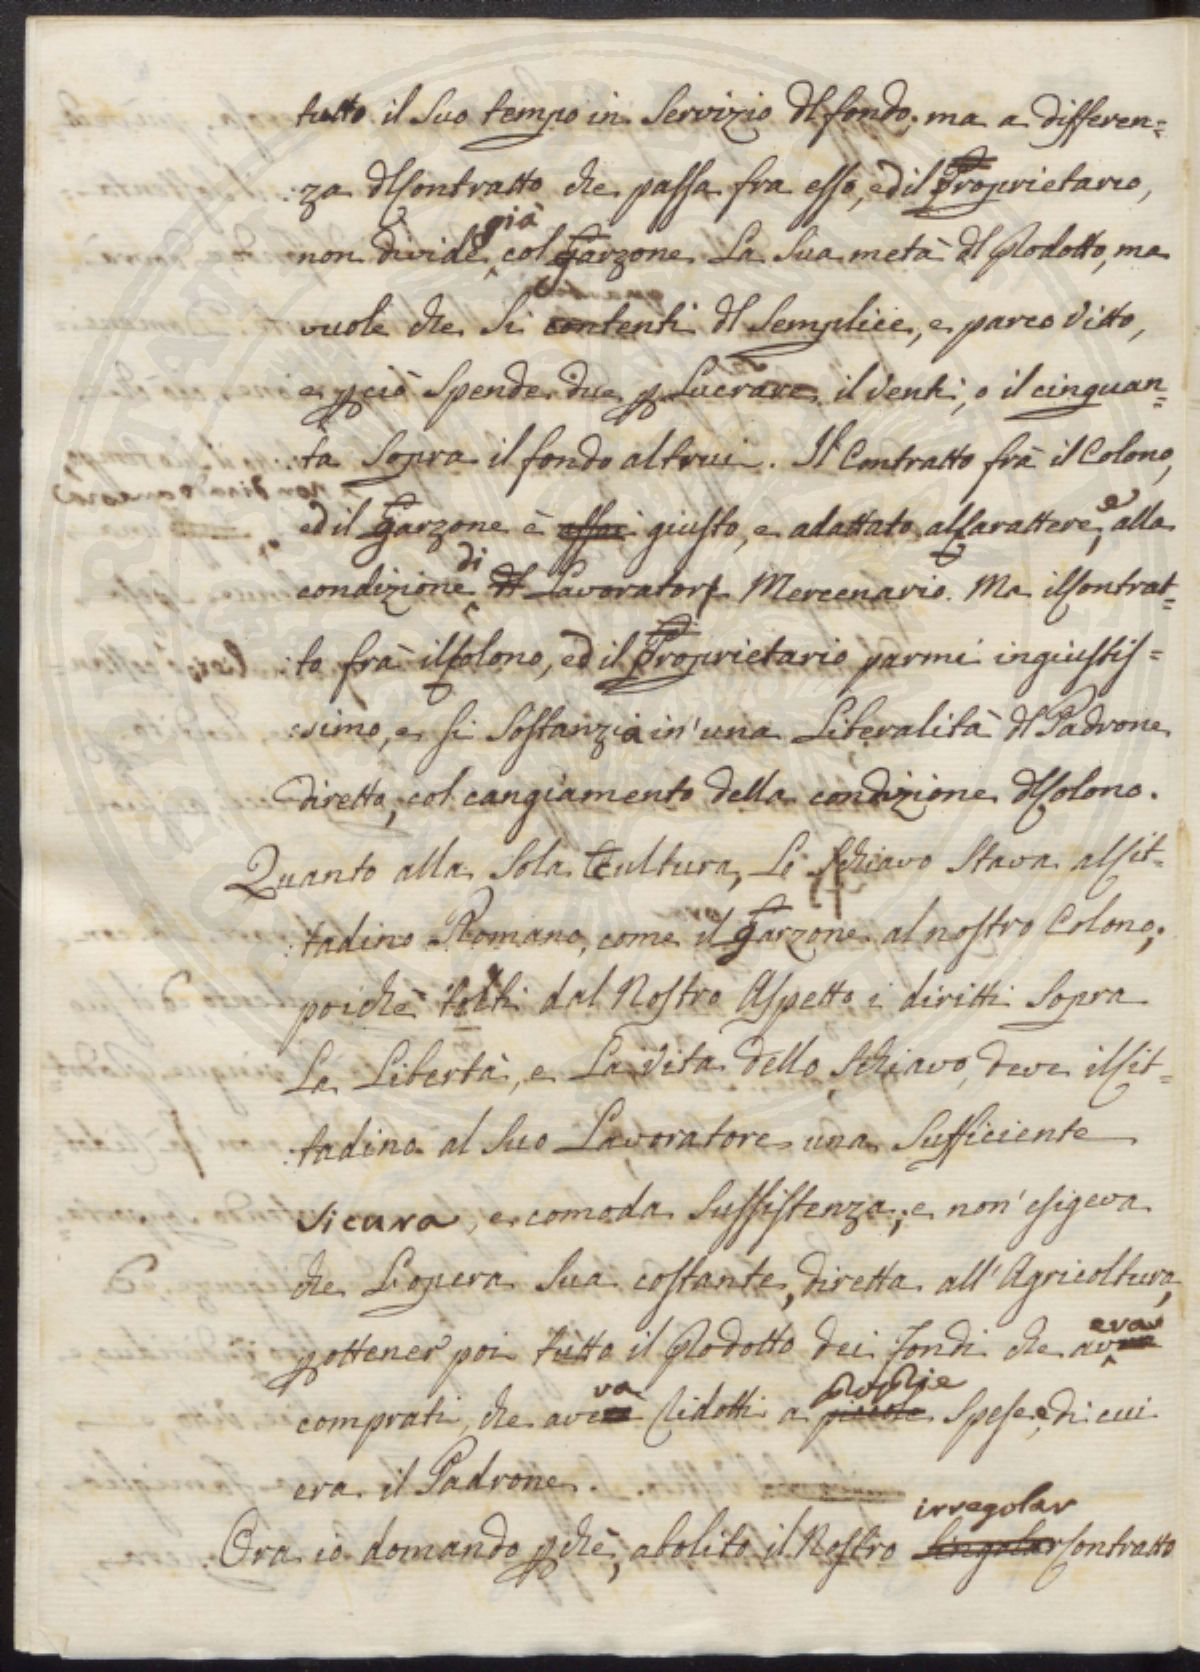 tutto il suo tempo in servizio dl fondo; ma a differen=
:za dl Contratto che passa fra esso, ed il Proprietario,
già
non divide, col Garzone La sua metà dl Prodotto, ma
vuole che si contenti dl semplice, e parco vitto,
e p ciò spende due p Lucrare il venti, o il cinquan=
ta sopra il fondo altrui. Il Contratto frà il Colono,
ed il Garzone è assai giusto, e adattato al Carattere, e alla
di
condizione dl Lavorator Mercenario. Ma il Contrat=
:to frà il Colono, ed il Proprietario parmi ingiustis=
:simo, e si sostanzia in'una Liberalità dl Padrone
diretto, col cangiamento della condizione dl Colono.
Quanto alla sola Cultura, Lo schiavo stava al Cit=
:tadino Romano, come il Garzone al nostro Colono;
poichè tolti dal Nostro Aspetto i diritti sopra
La Libertà, e La vita dello schiavo, deve il Cit=
:tadino al suo Lavoratore una sufficiente
sicura, e comoda sussistenza; e non'esigeva
che L'opera sua costante, diretta all'Agricoltura,
p ottener poi tutto il Prodotto dei Fondi che aveva
va proprie
comprati, che ave ridotti a piccole spese, e di cui
era il Padrone.
irregolar
Ora io domando p chè, abolito il Nostro singolar Contratto